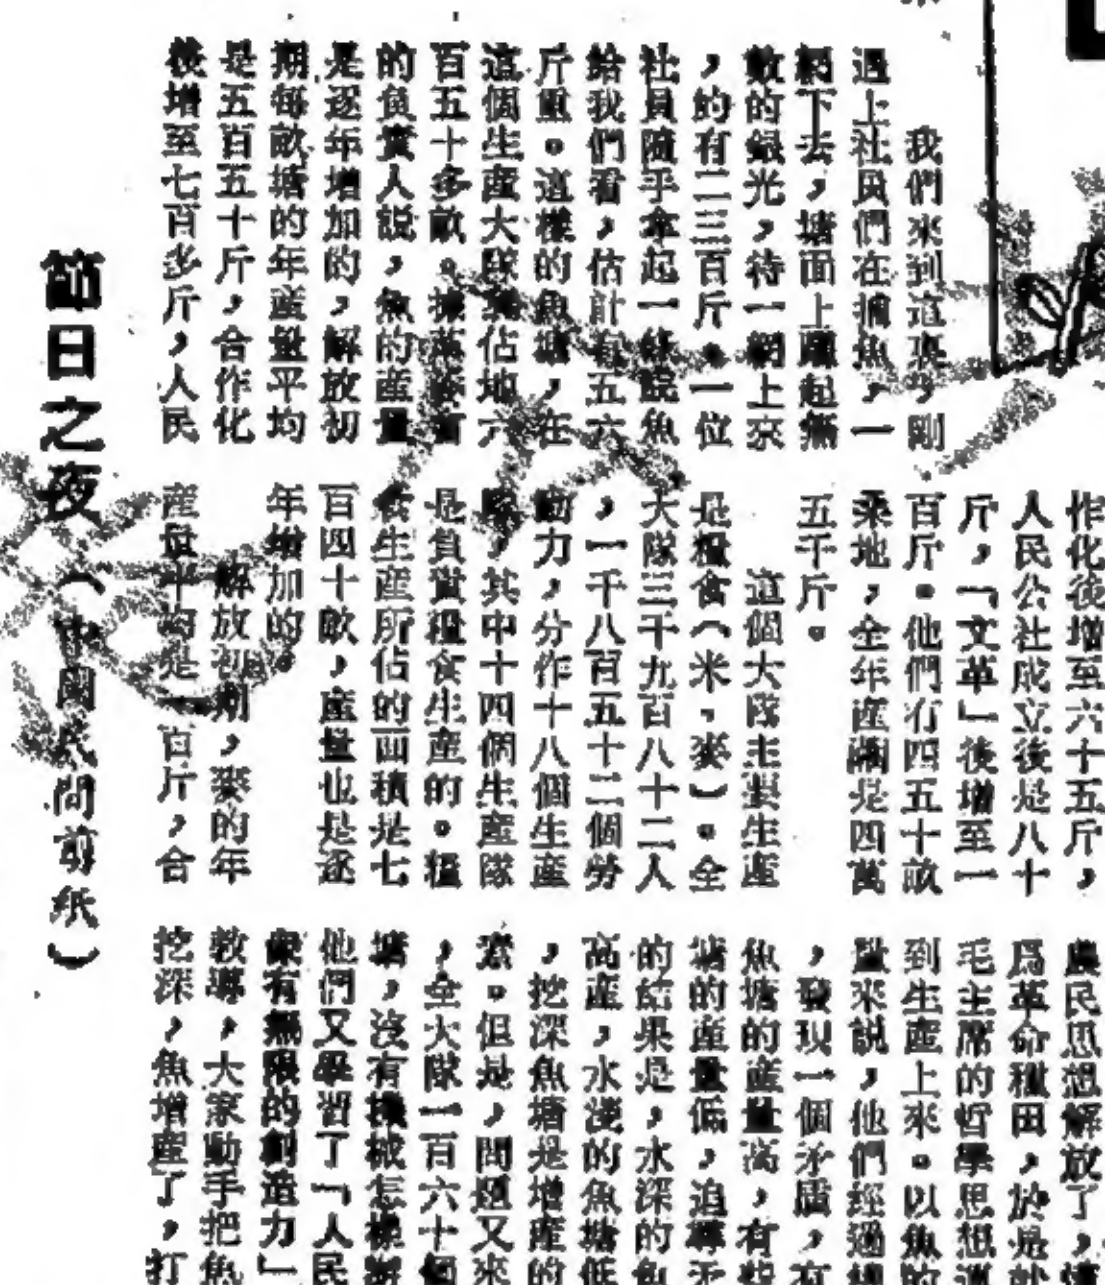 我們來到這裏,剛
遇上社員們在捕魚,一
網下去,塘面上躍起無
數的銀光,待一網上來
,約有二三百斤。一位
社員隨手拿起一條鯇魚
給我們看,估計有五六
斤重。這樣的魚塘,在
這個生產大隊佔地六
百五十多畝。
的負責人說,魚的產量
是逐年增加的,解放初
期每畝塘的年產量平均
是五百五十斤,合作化
後增至七百多斤,人民
作化後增至六十五斤,
人民公社成立後是八十
斤,「文革」後增至一
百斤。他們有四五十畝
桑地,全年產繭是四萬
五千斤。
這個大隊主要生產
是糧食(米、麥)。全
大隊三千九百八十二人
,一千八百五十二個勞
動力,分作十八個生產
隊,其中十四個生產隊
是負責糧食生產的。糧
食生產所佔的面積是七
百四十畝,產量也是逐
年增加的。
解放初期,麥的年
產量平均是一百斤,合
農民思想解放了,
爲革命種田,於是
毛主席的哲學思想
到生產上來。以魚的
量來說,他們經過
,發現一個矛盾,有
魚塘的產量高,有些
塘的產量低,追尋
的結果是,水深的魚
高產,水淺的魚塘低
,挖深魚塘是增產的
。但是,問題又來
,全大隊一百六十個
塘,沒有機械怎樣
他們又學習了「人民
衆有無限的創造力」
教導,大家動手把魚
挖深,魚增產了,打
節日之夜(中國民間剪紙)